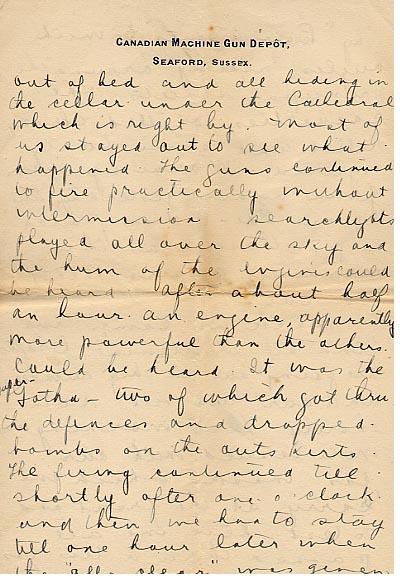 CANADIAN MACHINE GUN DEPÔT,
SEAFORD, SUSSEX.
out of bed and all hiding in
the cellar under the Cathedral
which is right by. Most of
us stayed out to see what
happened. The guns continued
to fire practically without
intermission - searchlights
played all over the sky and
the hum of the engines could
be heard. After about half
an hour an engine, apparently
more powerful than the others.
Could be heard. It was the
super-
Gotha - two of which got thru
the defences and dropped
bombs on the outskirts.
The firing continued till
shortly after one o'clock
and then we had to stay
till one hour later when
the "all clear" was given